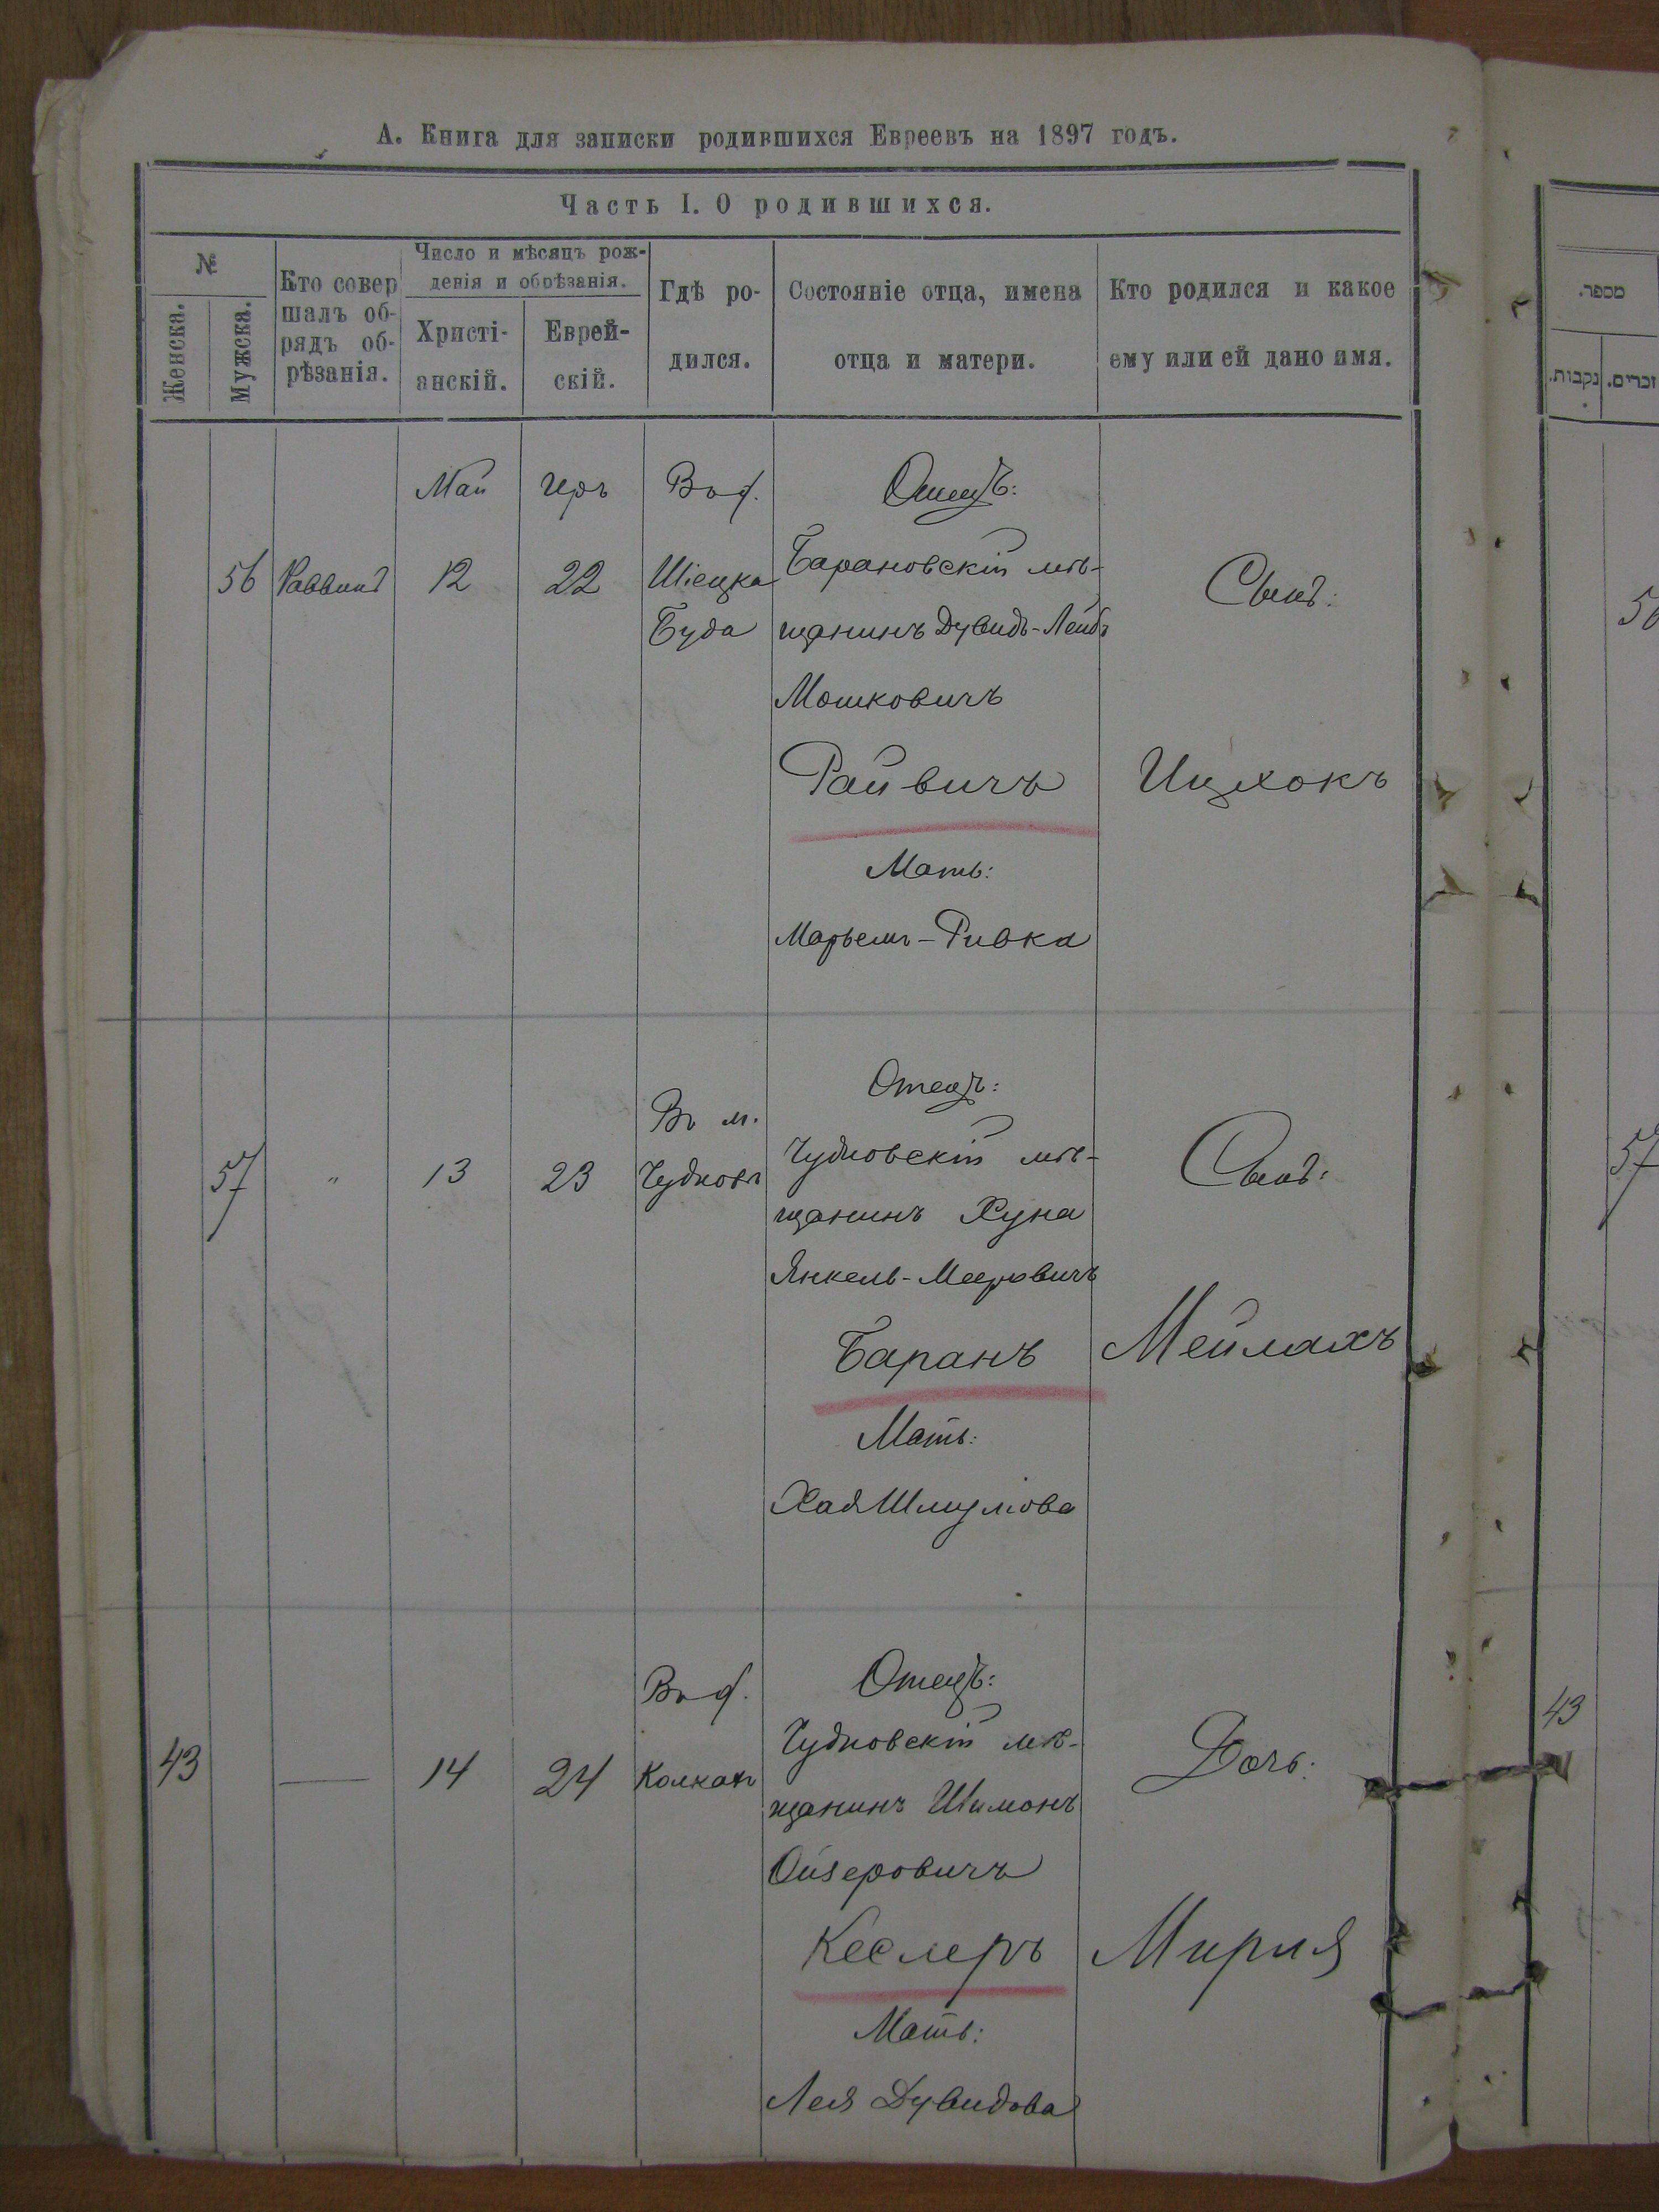 А. Книга для записки родившихся Евреевъ на 1897 годъ.
Часть I. О родившихся.
№
Женска.
Мужска.
Кто совер
шалъ об-
рядъ об-
рѣзанія.
Число и мѣсяцъ рож-
денія и обрѣзанія.
Христі-
анскій.
Еврей-
скій.
Гдѣ ро-
дился.
Состояніе отца, имена
отца и матери.
Кто родился и какое
ему или ей дано имя.
56
Раввинъ
Май
12
Iіръ
22
Въ д.
Буда
Отецъ:
Барановскій мѣ-
щанинъ Дувидъ-Лейбъ
Мошковичъ
Райвичъ
Мать:
Марьемъ-Ривка
Сынъ:
Ицхокъ
57
"
13
23
Въ м.
Чудновъ
Отецъ:
Чудновскій мѣ-
щанинъ Хуна
Янкель-Мееровичъ
Баранъ
Мать:
Хая Шмулова
Сынъ:
Мейлахъ
43
—
14
24
Въ д.
Отецъ:
Чудновскій мѣ-
щанинъ Шимонъ
Ойзеровичъ
Кеслеръ
Мать:
Лея Дувидова
Дочь:
Мирля
מספר.
נקבות.
זכרים.
56
57
43